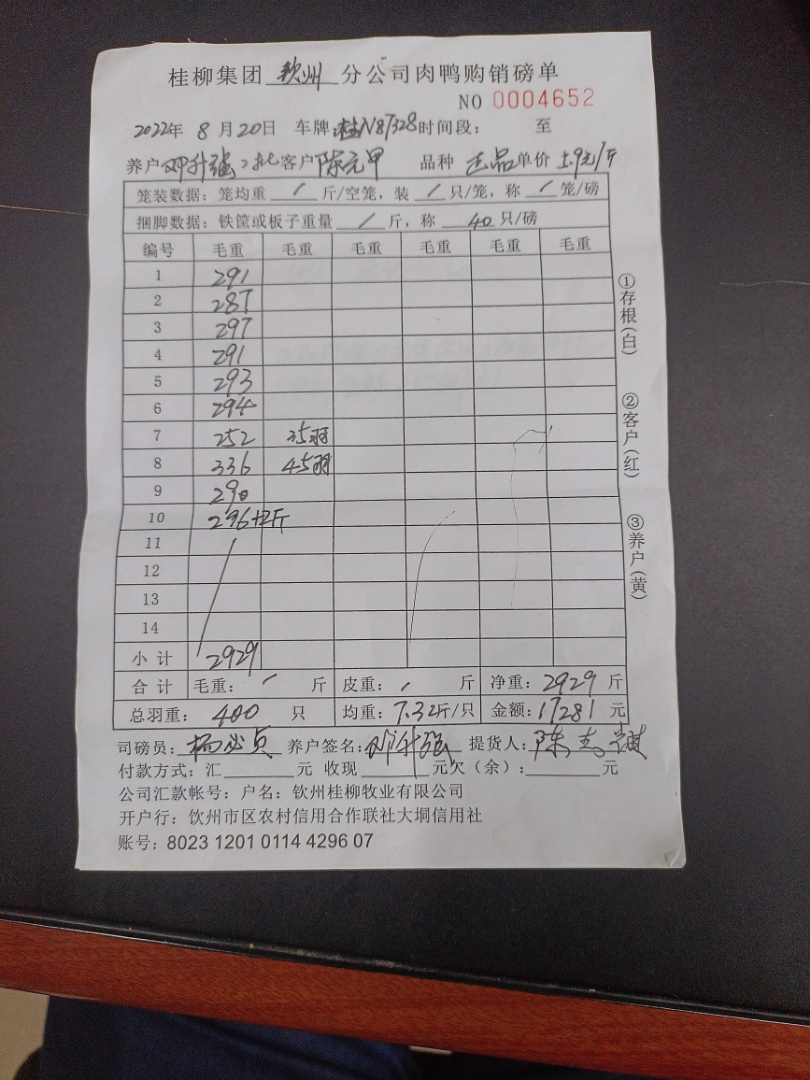 桂柳集团 钦州 分公司肉鸭购销磅单
NO 0004652
2022年 8月20日 车牌:桂N87328时间段: 至
养户邓升强2批客户陈元甲 品种 正品单价5.9元/斤
笼装数据:笼均重 / 斤/空笼,装 / 只/笼,称 / 笼/磅
捆脚数据:铁筐或板子重量 / 斤,称 40 只/磅
编号 毛重 毛重 毛重 毛重 毛重 毛重
1 291
2 287
3 297
4 291
5 293
6 294
7 252 35羽
8 336 45羽
9 290
10 296+2斤
11
12
13
14
小计 2929
合计 毛重: / 斤 皮重: / 斤 净重:2929斤
总羽重:400只 均重:7.32斤/只 金额:17281元
司磅员:杨 贞 养户签名:邓升强 提货人:陈
付款方式:汇 元 收现 元欠(余): 元
公司汇款帐号:户名:钦州桂柳牧业有限公司
开户行:钦州市区农村信用合作联社大垌信用社
账号:8023 1201 0114 4296 07
①存根(白)
②客户(红)
③养户(黄)